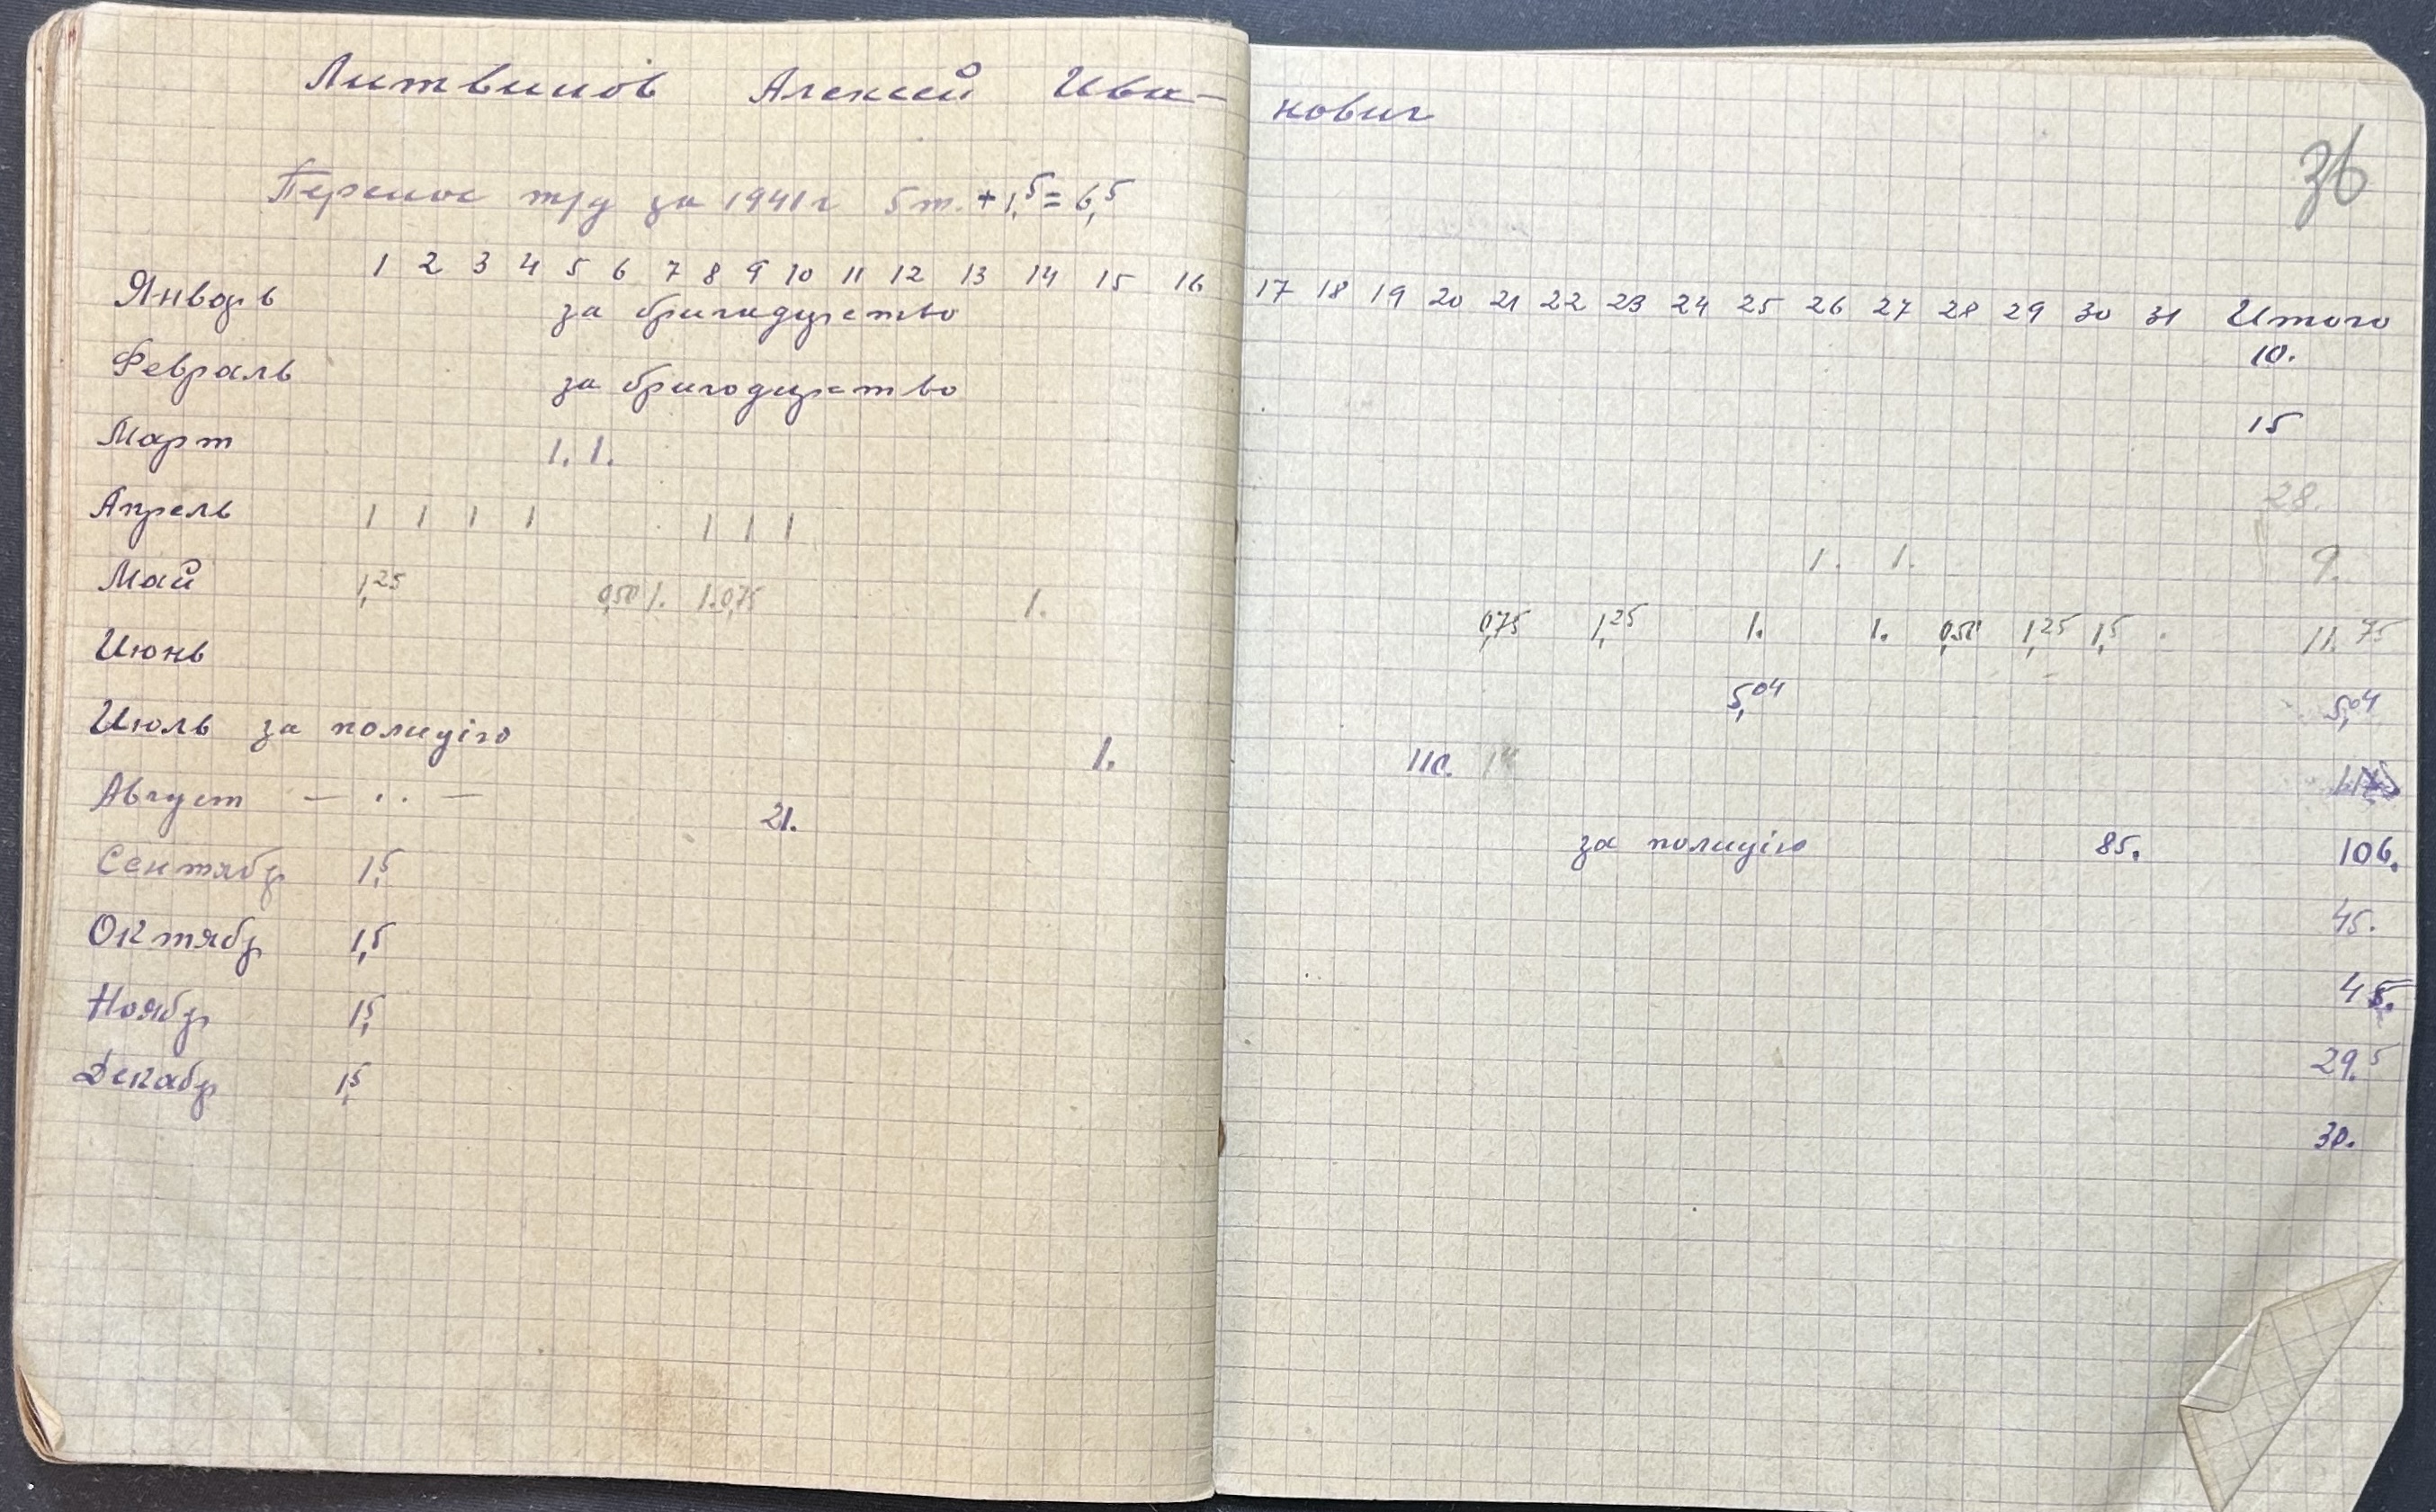 Литвинов Алексей Ива-
нович
36
Перенос т/д за 1941г 5т. + 1,5 = 6,5
1 2 3 4 5 6 7 8 9 10 11 12 13 14 15 16 17 18 19 20 21 22 23 24 25 26 27 28 29 30 31 Итого
Январь за бригадирство 10.
Февраль за бригодирство 15
Март 1. 1. 28.
Апрель 1 1 1 1 1 1 1 1. 1. 9.
Май 1,25 0,50 1. 1. 0,75 1. 0,75 1,25 1. 1. 0,50 1,25 1,5 11.75
Июнь 5,04 5,04
Июль за полицію 1. 110.
Август — ·· — 21. за полицію 85. 106.
Сентябр 1,5 45.
Октябр 1,5 45.
Ноябр 1,5 29.5
Декабр 1,5 30.